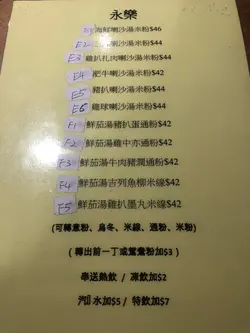 永樂
E1 海鮮喇沙湯米粉$46
E2 喇沙湯米粉$44
E3 雞扒扎肉喇沙湯米粉$44
E4 肥牛喇沙湯米粉$42
E5 豬扒喇沙湯米粉$44
E6 雞球喇沙湯米粉$44
F1 鮮茄湯豬扒蛋通粉$42
F2 鮮茄湯雞中亦通粉$42
F3 鮮茄湯牛肉豬潤通粉$42
F4 鮮茄湯吉列魚柳米線$42
F5 鮮茄湯雞扒墨丸米線$42
(可轉意粉、烏冬、米線、通粉、米粉)
(轉出前一丁或鴛鴦粉加$3)
奉送熱飲 / 凍飲加$2
汽水加$5 / 特飲加$7